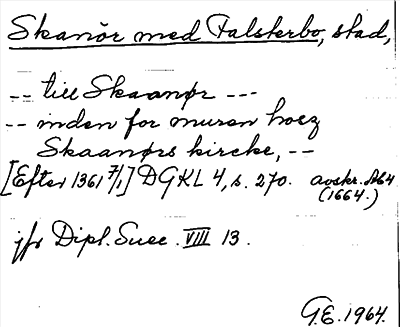 Skanör med Falsterbo, stad,
-- till Skaanør ---
-- inden for muren hoez
Skaanørs kircke, --
[Efter 1361 7/1] DGKL 4, s. 270. avskr. A64
(1664.)
jfr Dipl. Suec. VIII 13.
G.E. 1964.